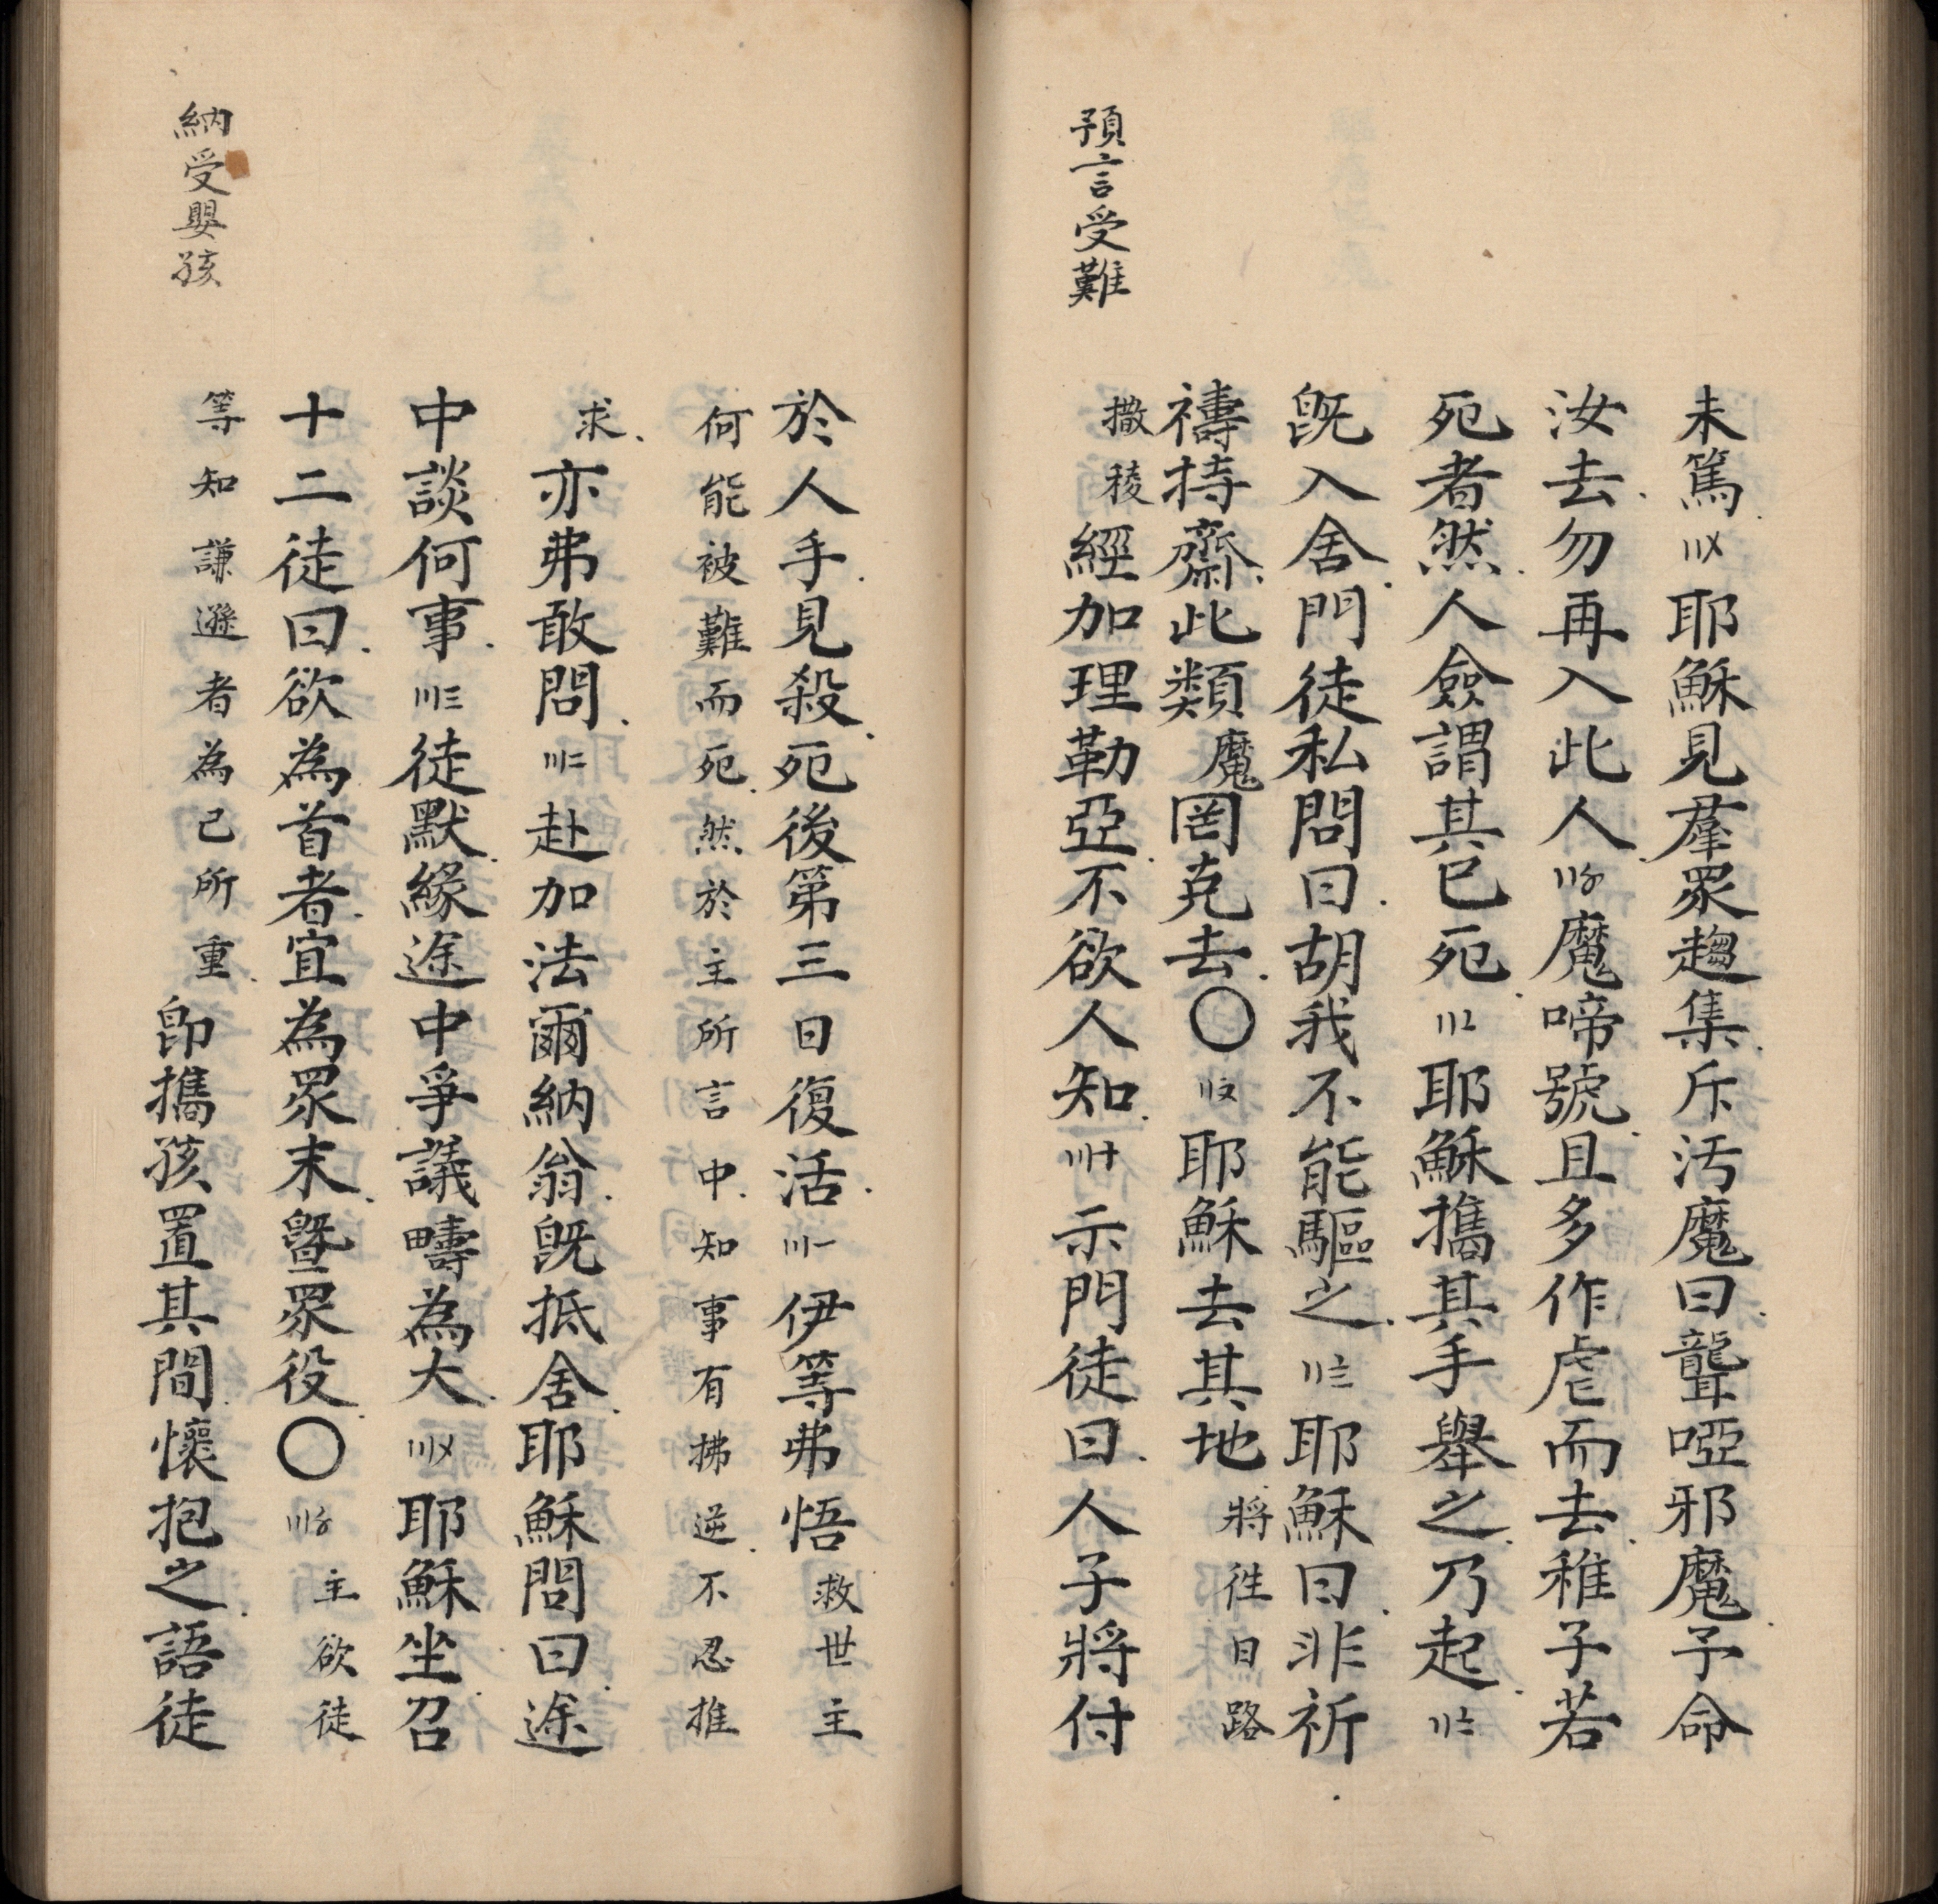 未篤〢〤耶穌見羣眾趨集斥汚魔曰聾啞邪魔予命
汝去勿再入此人〢〥魔啼號且多作虐而去稚子若
死者然人僉謂其已死〢〦耶穌攜其手舉之乃起〢〧
旣入舍門徒私問曰胡我不能驅之〢〨耶穌曰非祈
禱持齋此類魔罔克去〇〢〩耶穌去其地將徃日路
預言受難
撒稜經加理勒亞不欲人知〣十示門徒曰人子將付
於人手見殺死後第三日復活〣一伊等弗悟救世主
何能被難而死然於主所言中知事有拂逆不忍推
求亦弗敢問〣二赴加法爾納翁旣抵舍耶穌問曰途
中談何事〣三徒默緣途中爭議疇為大〣〤耶穌坐召
十二徒曰欲為首者宜為眾末曁眾役〇〣〥主欲徒
納受嬰孩
等知謙遜者為己所重卽攜孩置其間懷抱之語徒